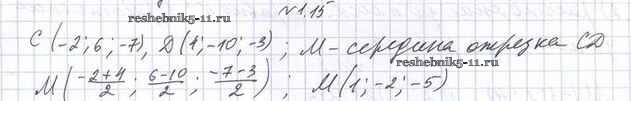 №1.15
reshebnik5-11.ru
C (-2; 6; -7), D (4; -10; -3) ; M - середина отрезка CD
reshebnik5-11.ru
M ( (-2+4)/2 ; (6-10)/2 ; (-7-3)/2 ) ; M (1; -2; -5)